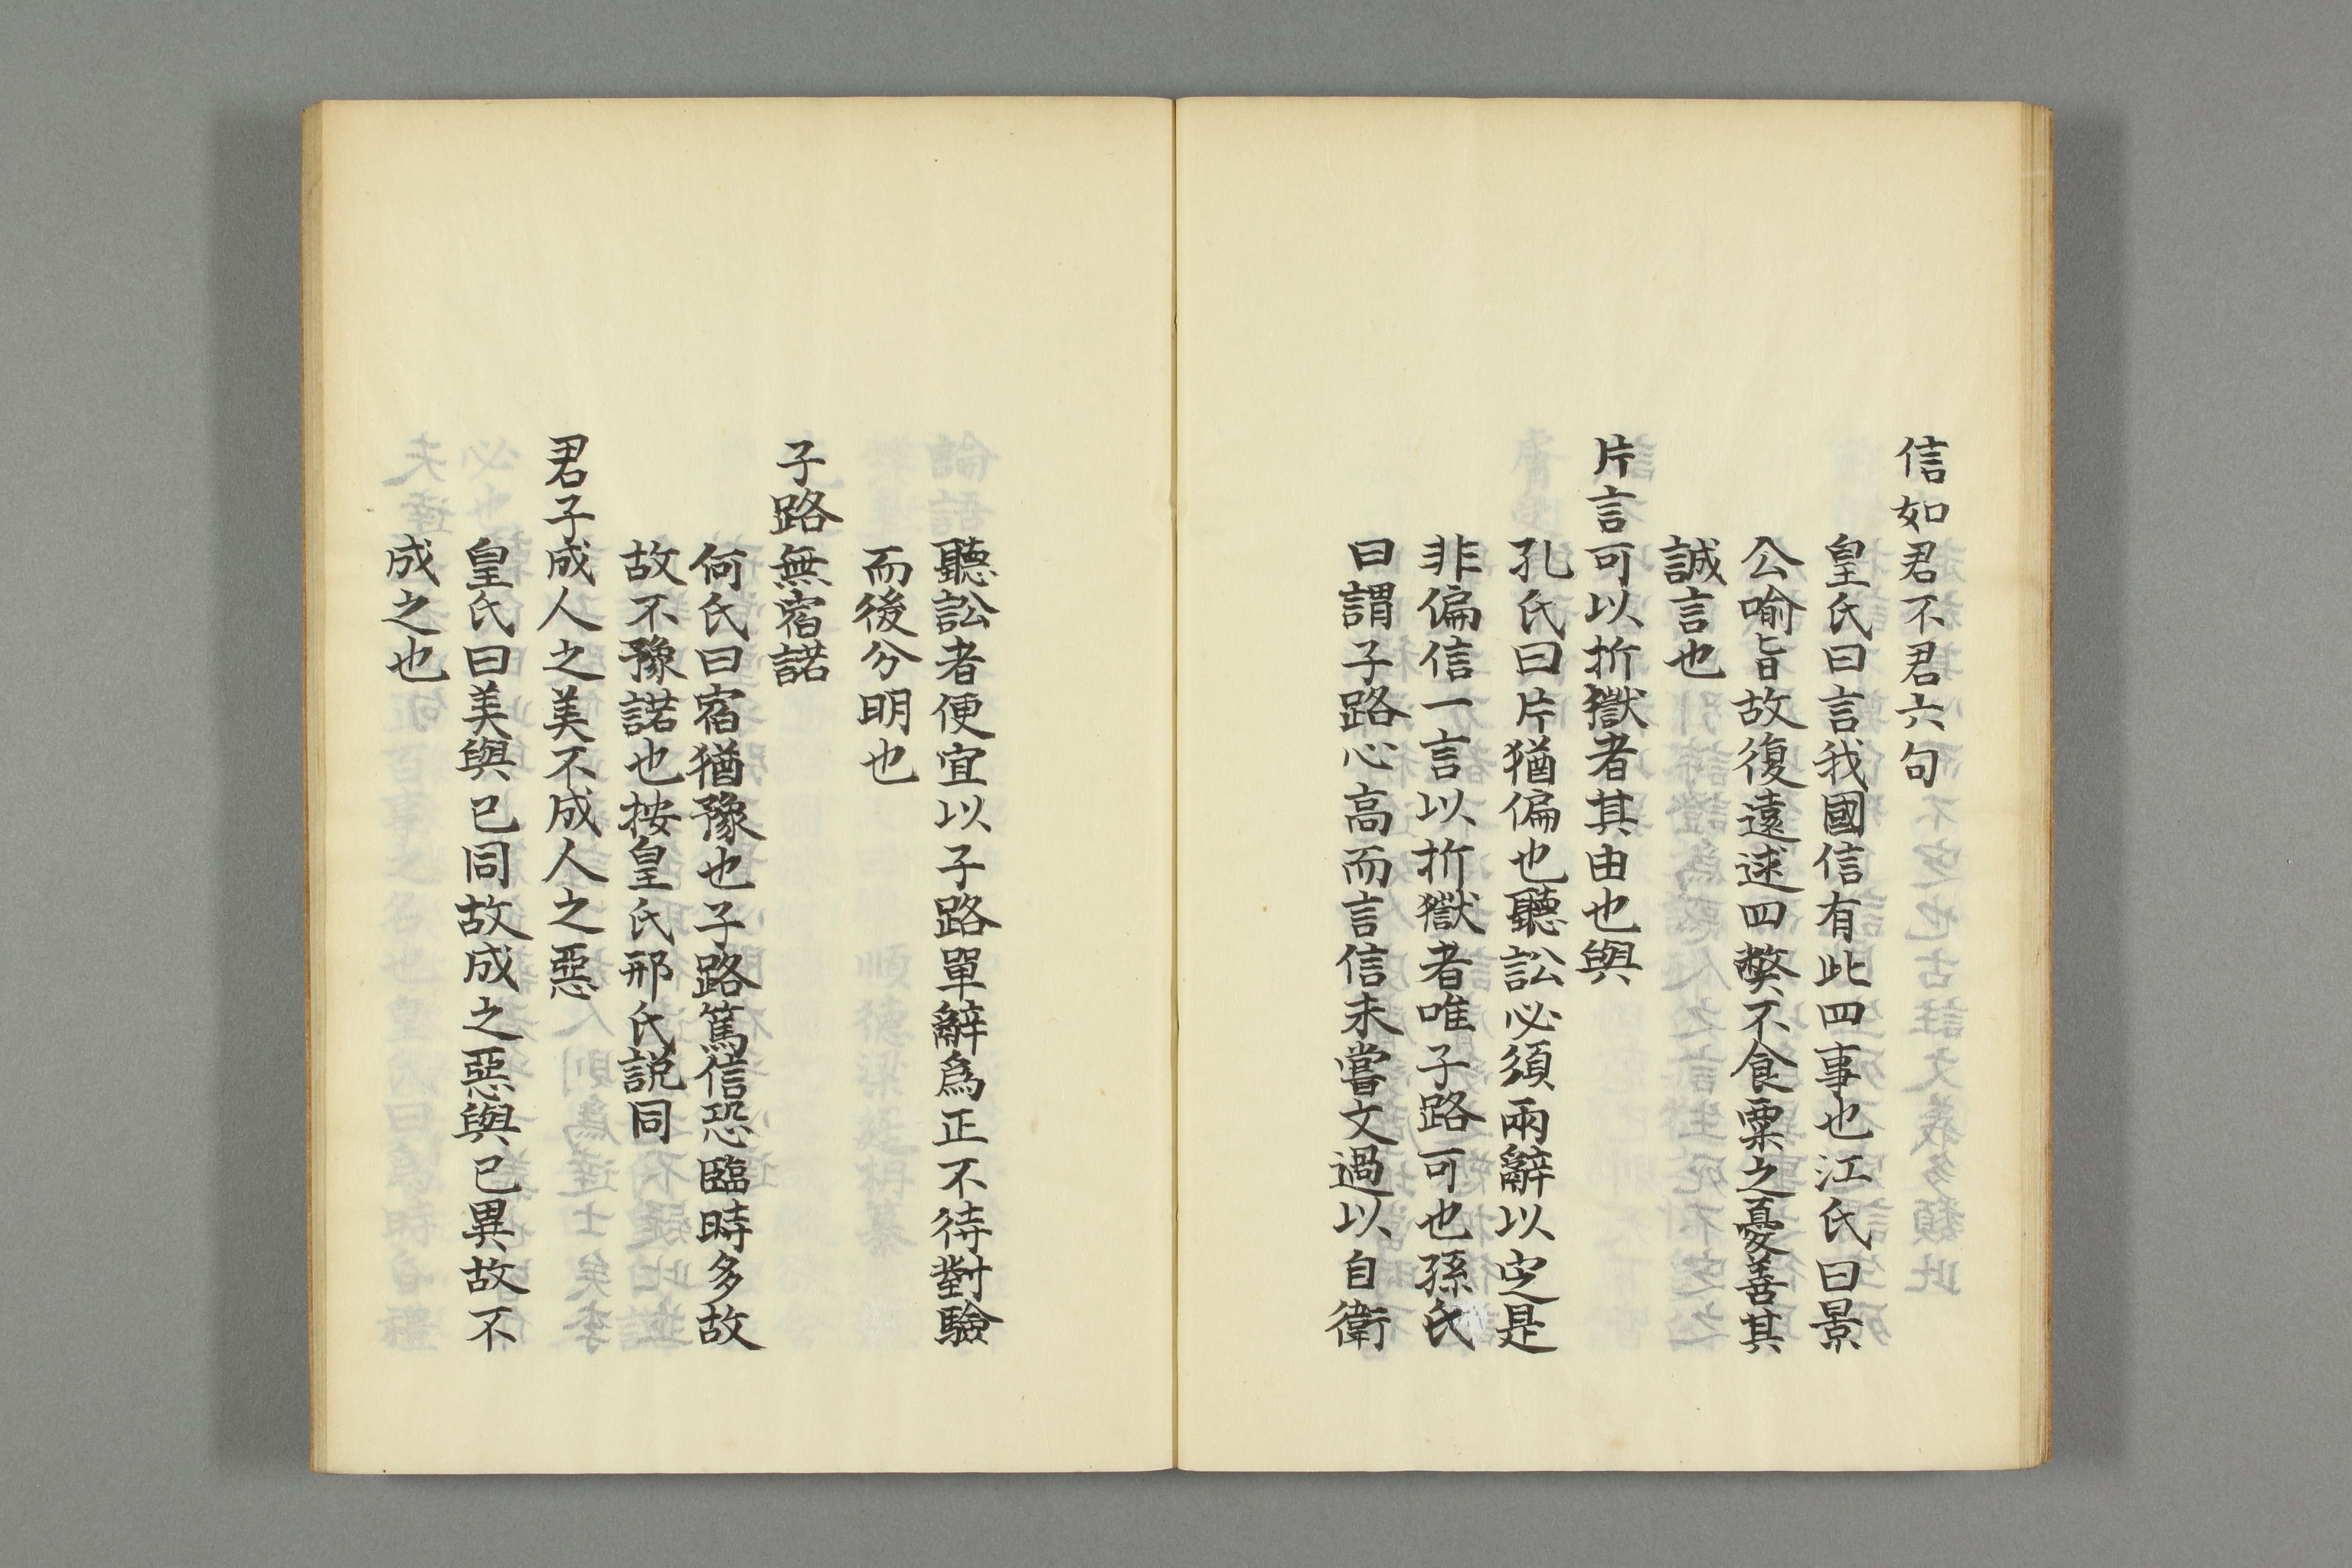 信如君不君六句
皇氏曰言我國信有此四事也江氏曰景
公喻旨故復遠述四弊不食粟之憂善其
誠言也
片言可以折獄者其由也與
孔氏曰片猶偏也聽訟必須兩辭以定是
非偏信一言以折獄者唯子路可也孫氏
曰謂子路心高而言信未嘗文過以自衛
聽訟者便宜以子路單辭爲正不待對驗
而後分明也
子路無宿諾
何氏曰宿猶豫也子路篤信恐臨時多故
故不豫諾也按皇氏邢氏説同
君子成人之美不成人之惡
皇氏曰美與己同故成之惡與己異故不
成之也